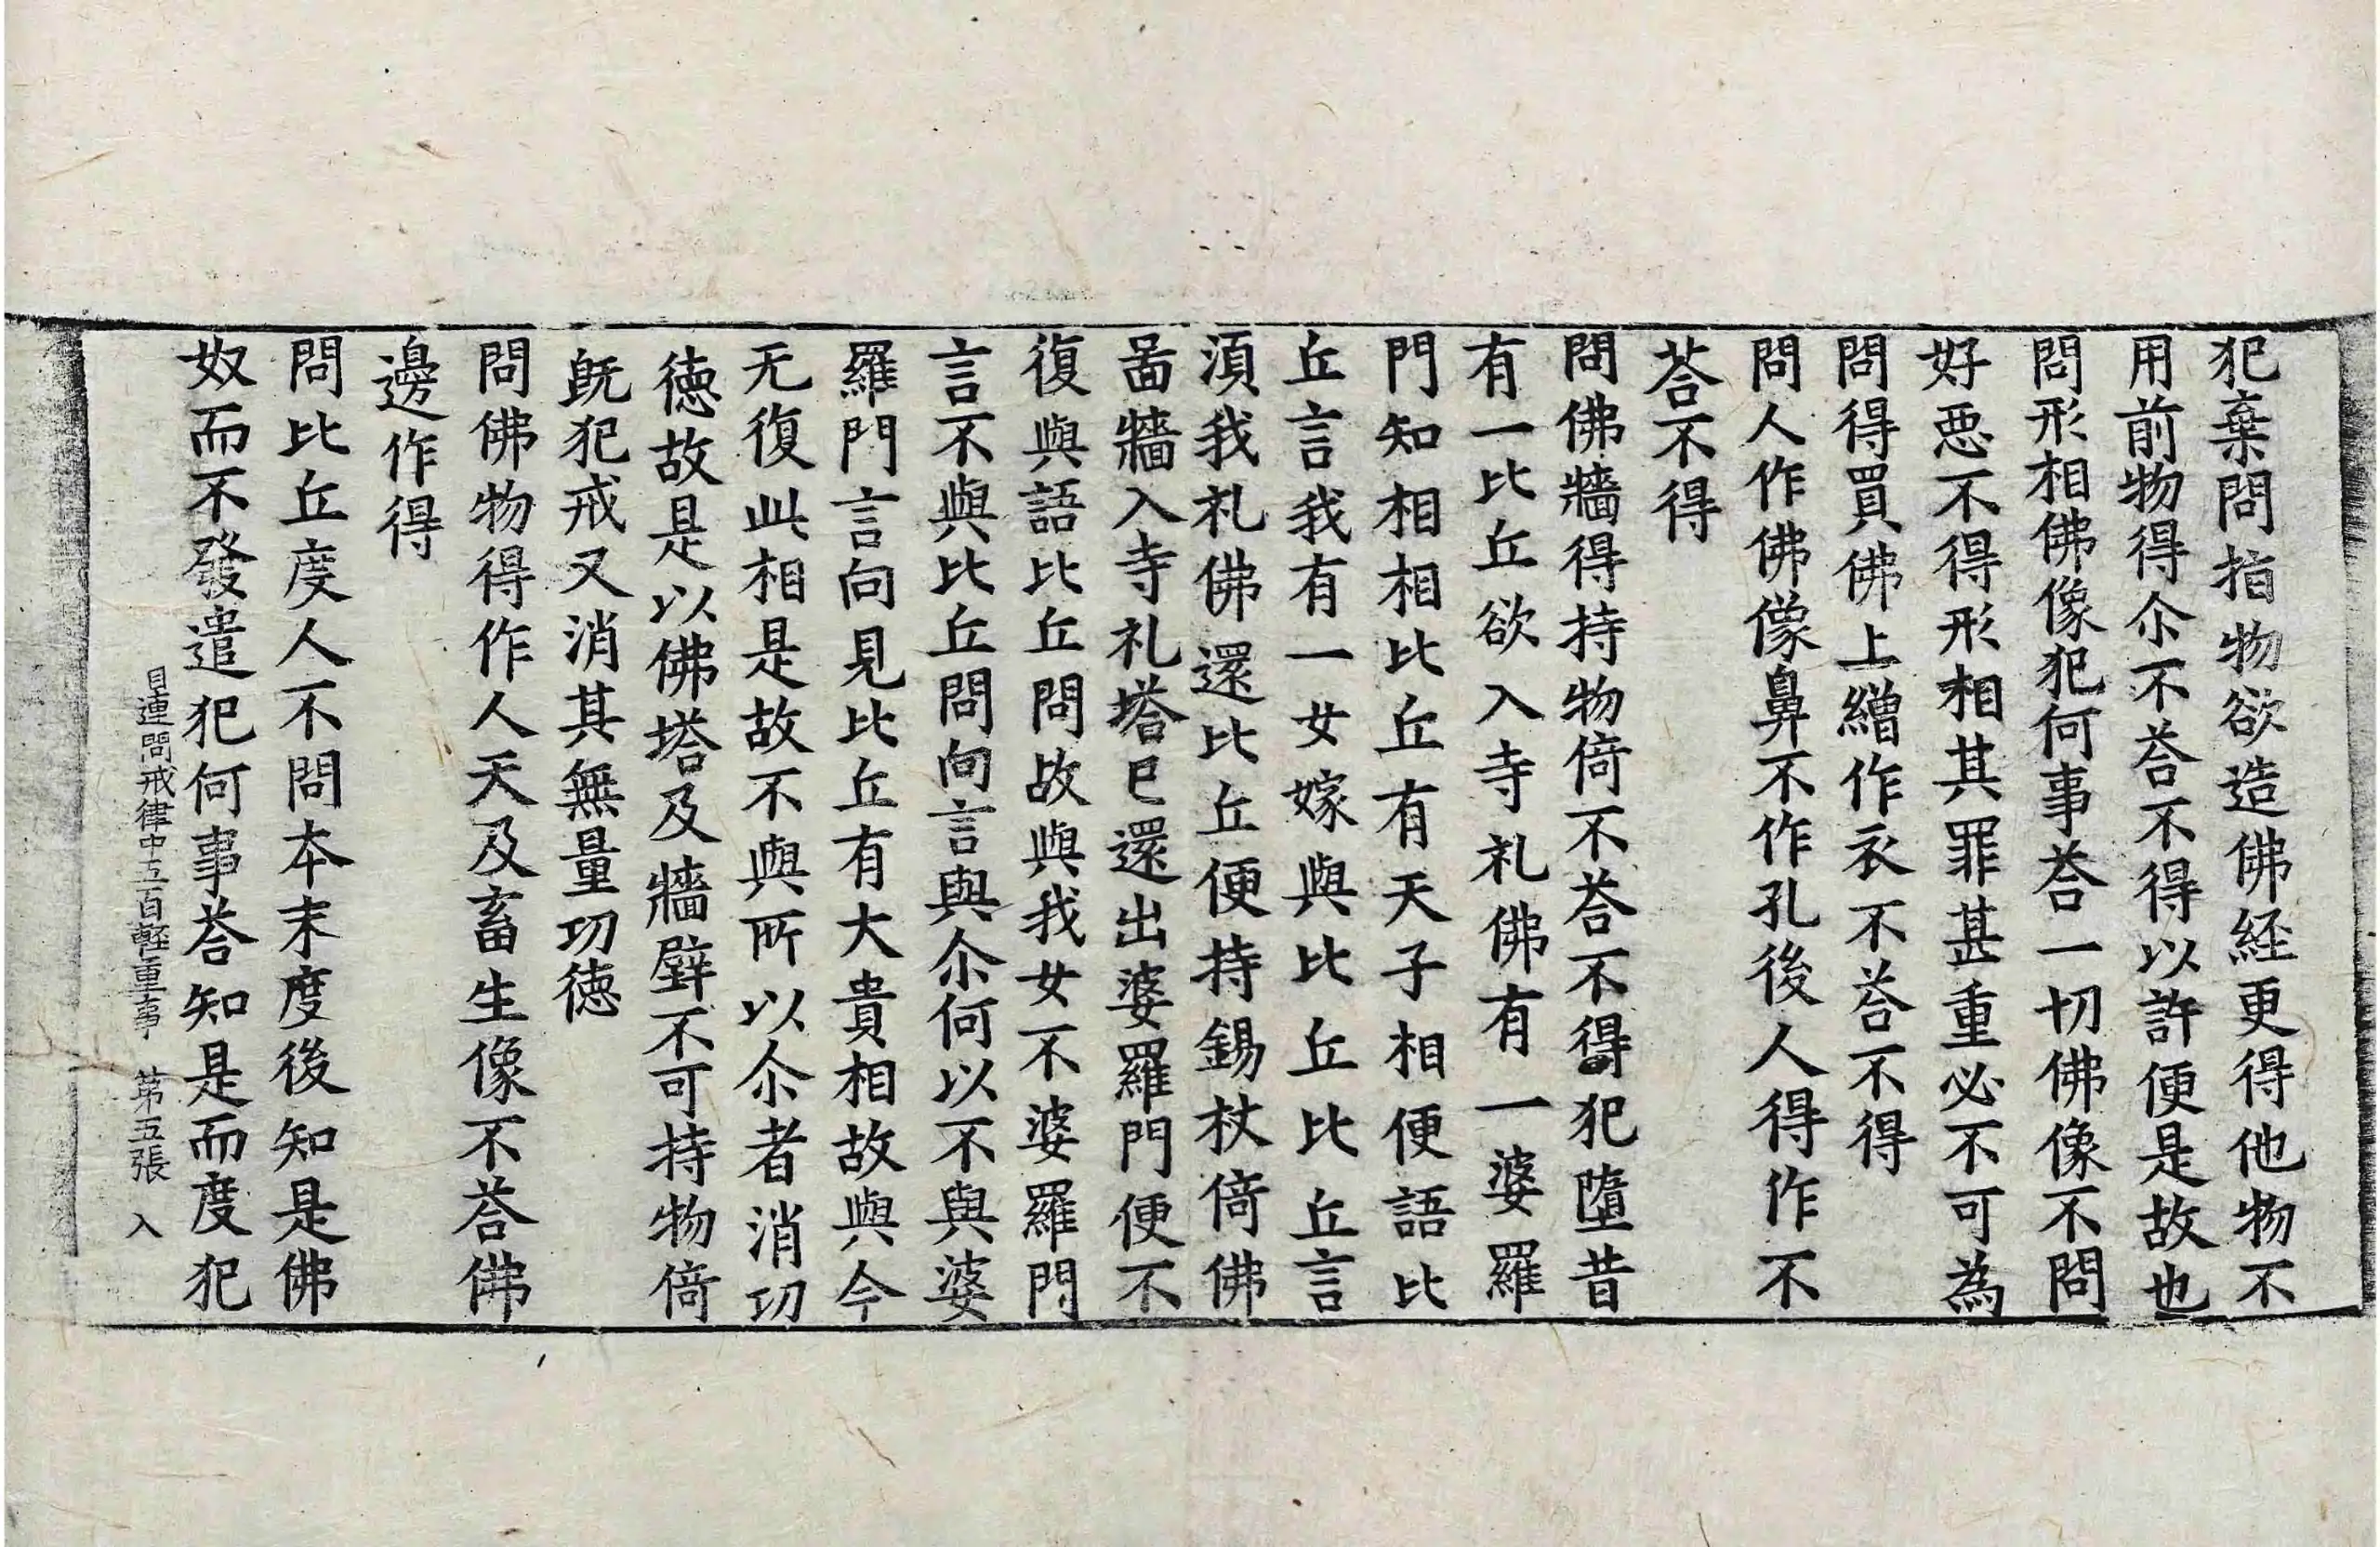 犯棄問指物欲造佛經更得他物不
用前物得尒不荅不得以許便是故也
問形相佛像犯何事荅一切佛像不問
好惡不得形相其罪甚重必不可為
問得買佛上繒作衣不荅不得
問人作佛像鼻不作孔後人得作不
荅不得
問佛牆得持物倚不荅不得犯墮昔
有一比丘欲入寺礼佛有一婆羅
門知相相比丘有天子相便語比
丘言我有一女嫁與比丘比丘言
湏我礼佛還比丘便持錫杖倚佛
啚牆入寺礼塔已還出婆羅門便不
復與語比丘問故與我女不婆羅門
言不與比丘問向言與尒何以不與婆
羅門言向見比丘有大貴相故與今
无復此相是故不與所以尒者消功
德故是以佛塔及牆壁不可持物倚
旣犯戒又消其無量功德
問佛物得作人天及畜生像不荅佛
邊作得
問比丘度人不問本末度後知是佛
奴而不發遣犯何事荅知是而度犯
目連問戒律中五百輕重事 第五張 入